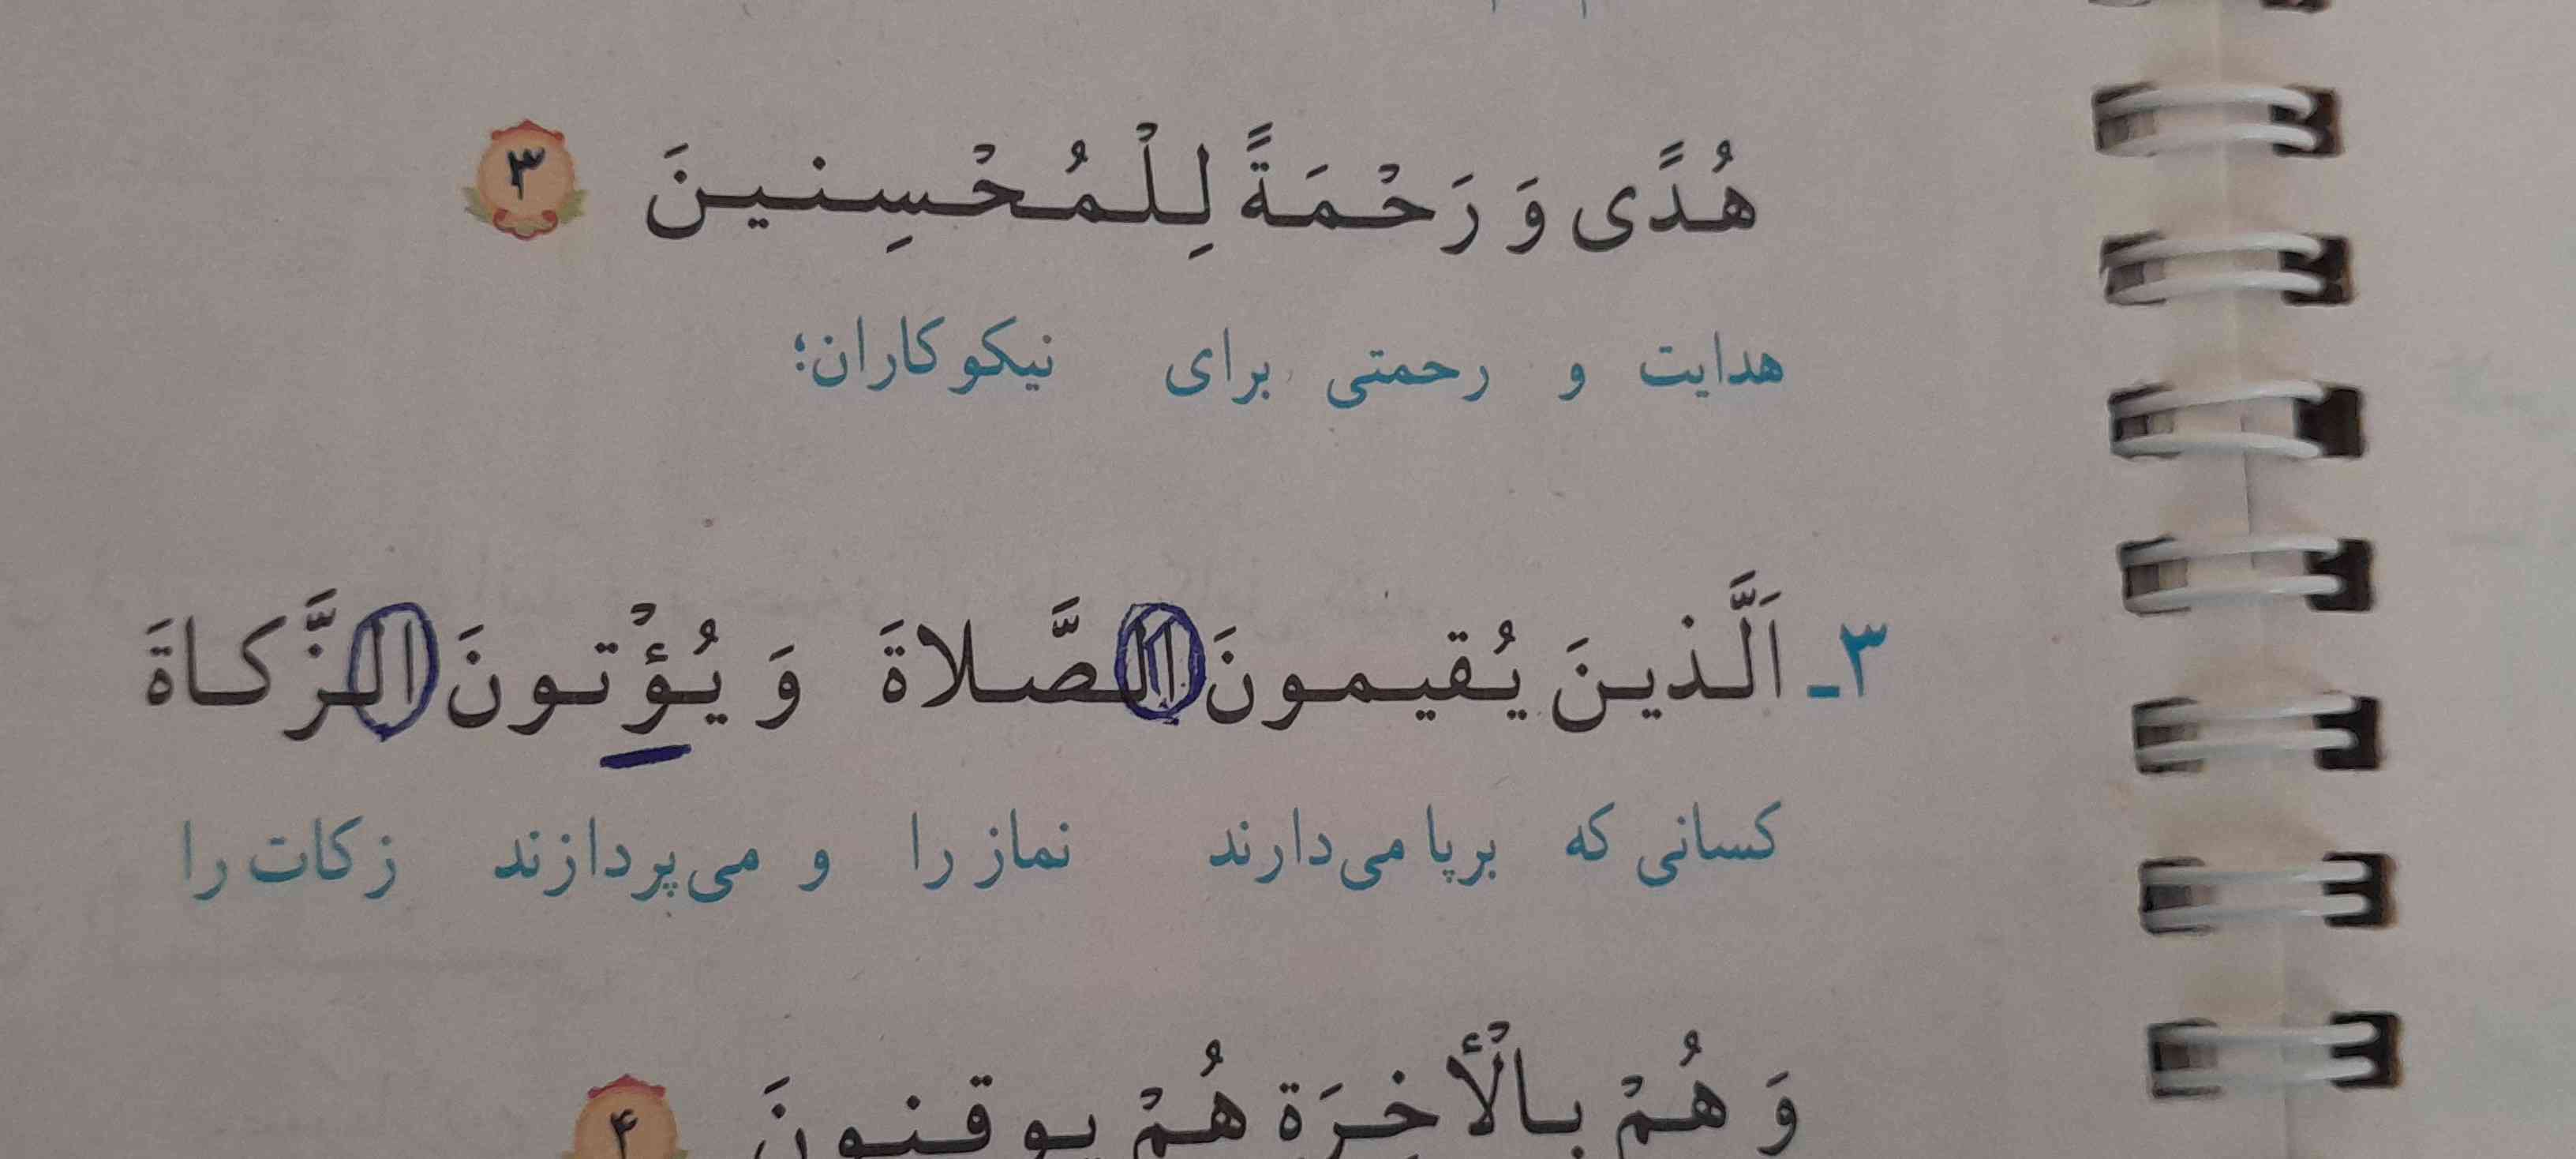 هُدًى وَ رَحْمَةً لِلْمُحْسِنينَ ۳
هدایت و رحمتی برای نیکوکاران؛
۳ـ اَلَّذينَ يُقيمونَ الصَّلاةَ وَ يُؤْتونَ الزَّكاةَ
کسانی که برپا می‌دارند نماز را و می‌پردازند زکات را
وَ هُمْ بِالْأخِرَةِ هُمْ يوقِنونَ ۴